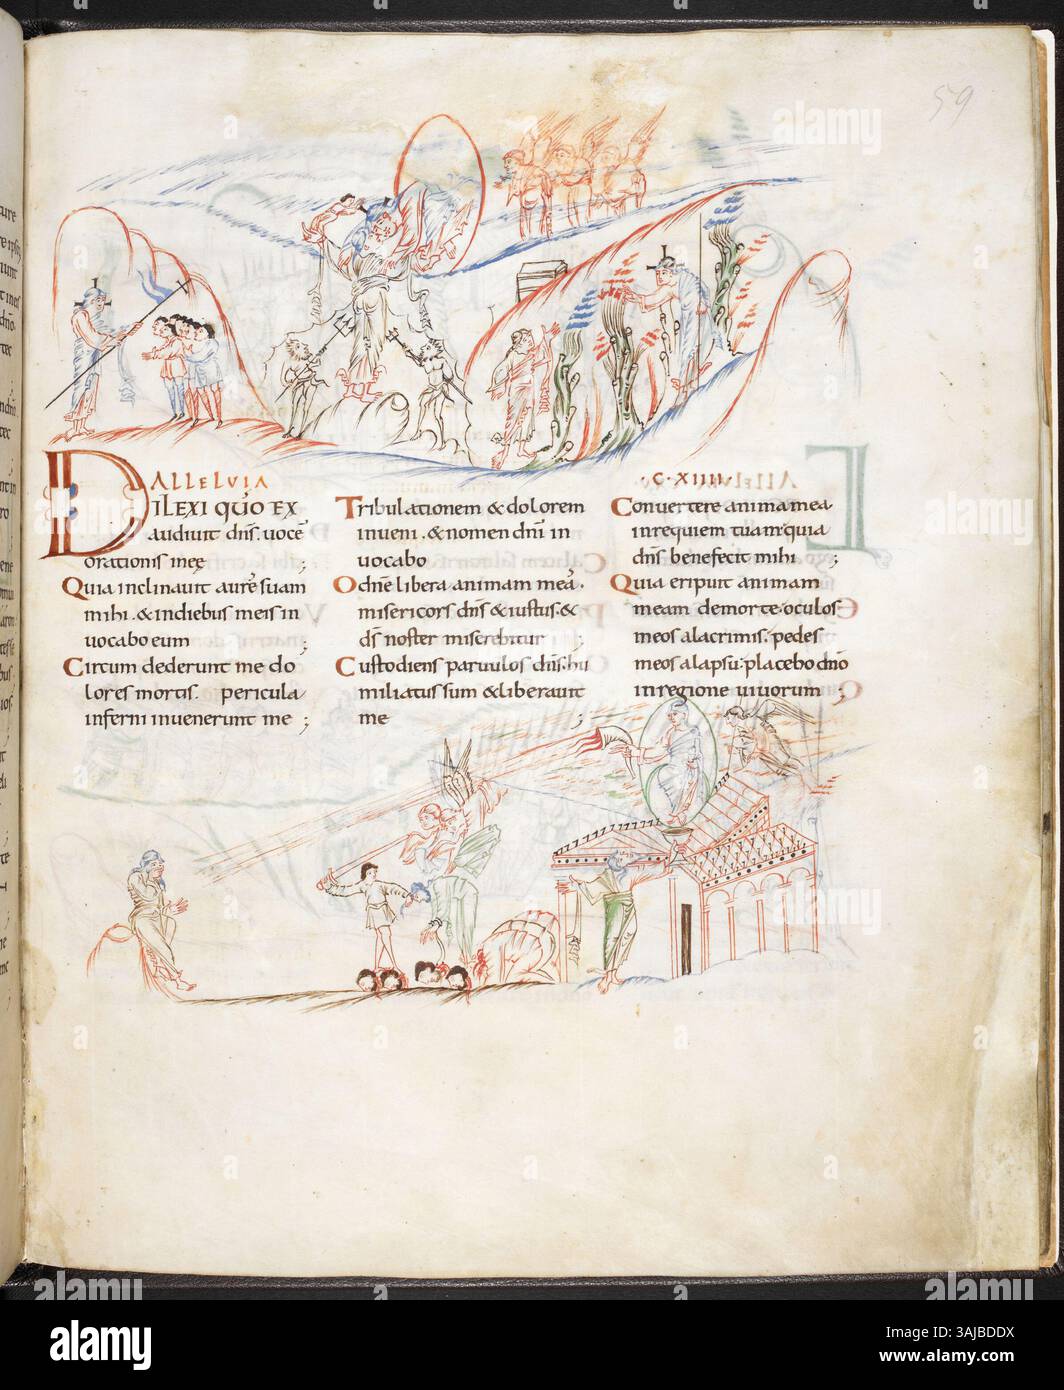 59
ALLELVIA
DILEXI QUO EX
audiuit dñs. uocē
orationis meę ;
Quia inclinauit aurē suam
mihi . & indiebus meis in
uocabo eum ;
Circum dederunt me do
lores mortis. pericula
inferni inuenerunt me ;
Tribulationem & dolorem
inueni . & nomen dñi in
uocabo
O dñe libera animam meā .
misericors dñs & iustus . &
ds noster miserebitur ;
Custodiens paruulos dñs . hu
miliatus sum & liberauit
me ;
.C.XIIII.
Conuertere anima mea
inrequiem tuam quia
dñs benefecit mihi .
Quia eripuit animam
meam demorte. oculos
meos alacrimis. pedes
meos alapsu. placebo dño
inregione uiuorum ;
alamy
Image ID: 3AJBDDX
www.alamy.com